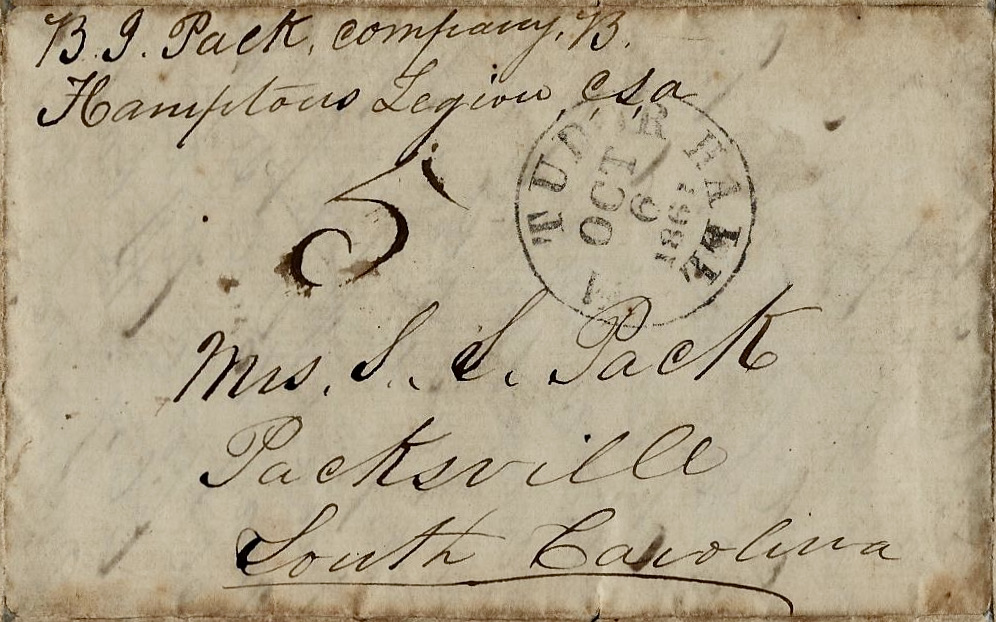 B. J. Pack, company, B.
Hamptons Legion, c,s,a
TUDOR HALL
OCT
6
1861
5
Mrs. S. S. Pack
Packsville
South Carolina